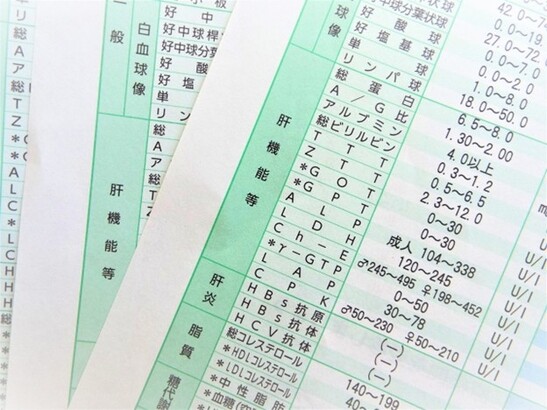 一般
白血球像
好 中
好中球桿
好中球分
好 酸
好 塩
単
リ ン
肝機能等
総
A
ア
総
T
Z
*
*
A
L
C
*
L
C
H
H
H
総
球像
好中球分葉状 27.0～72.
好 酸 球 0.0～7.0
好 塩 基 球 0.0～2.0
単 球 1.0～8.0
リ ン パ 球 18.0～50.0
肝機能等
総 蛋 白 6.5～8.0
A / G 比 1.30～2.00
アルブミン 4.0以上
総ビリルビン 0.3～1.2
T T T 0.5～6.5
Z T T 2.3～12.0
*G O T 0～30 U/l
*G P T 0～30 U/l
A L P 成人 104～338 U/l
L D H 120～245 U/l
C h - E ♂245～495 ♀198～452 U/l
*γ-GTP 0～50 U/l
L A P 30～78 U/l
C P K ♂50～230 ♀50～210 U/l
肝炎
HBs抗原 (－)
HBs抗体 (－)
HCV抗体 (－)
脂質
総コレステロール 140～199
*HDLコレステロール 40～
*LDLコレステロール
*中 性 脂 肪
糖代謝
*血糖(空